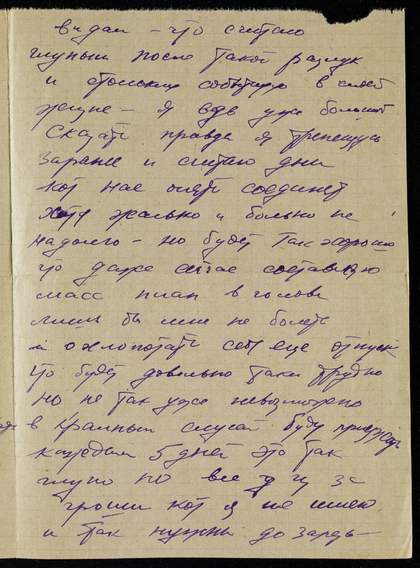 видал – что считаю
глупым после такой разлук
и стольких событию в своей
жизни – я еду уже больной
Сказать правда я трепещу
Заранее и считаю дни
кот нас опять соединет
Хотя жалько и больно не
надолго – но будет так хорошо
что даже сейчас составляю
масс план в голове
лишь бы мне не болеть
и охлопотать себе еще отпуск
что будет довольно таки трудно
но не так уже невозможно
в крайным случай буду приезжать
каждым 5 дней это так
глупо но все
гроши кот я не имею
и так нужны до зарез –